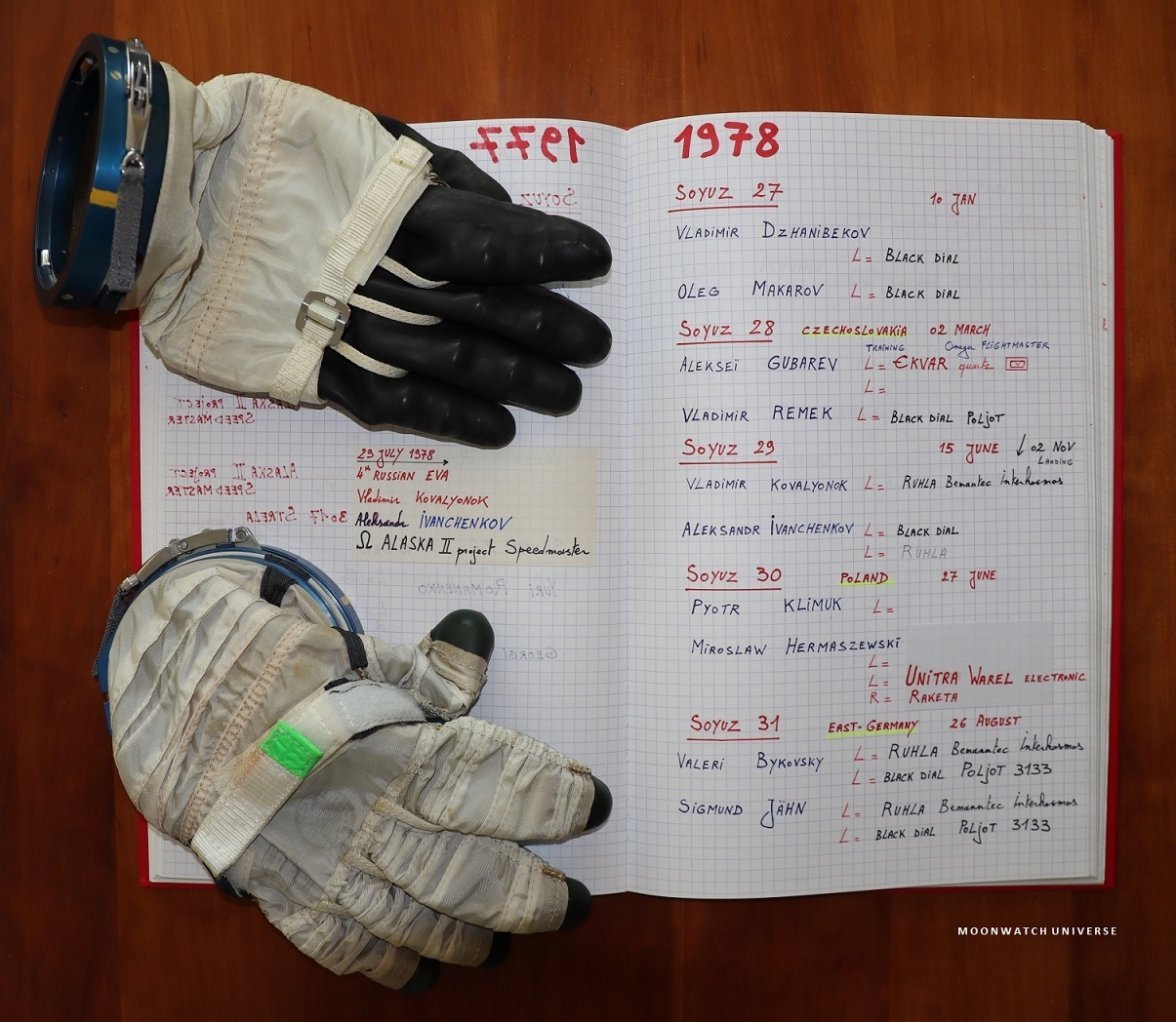 1977
SOYUZ
ALASKA II PROJECT
SPEEDMASTER
ALASKA II PROJECT
SPEEDMASTER
30-17 STRELA
29 JULY 1978
4TH RUSSIAN EVA
Vladimir KOVALYONOK
Aleksandr IVANCHENKOV
Ω ALASKA II project Speedmaster
YURI ROMANENKO
GEORGI
1978
SOYUZ 27 10 JAN
VLADIMIR DZHANIBEKOV
L = BLACK DIAL
OLEG MAKAROV L = BLACK DIAL
SOYUZ 28 CZECHOSLOVAKIA 02 MARCH
TRAINING Omega FLIGHTMASTER
ALEKSEÏ GUBAREV L = €KVAR quartz
L =
VLADIMIR REMEK L = BLACK DIAL POLJOT
SOYUZ 29 15 JUNE ↓ 02 NOV
LANDING
VLADIMIR KOVALYONOK L = RUHLA Bemantec Interkosmos
ALEKSANDR IVANCHENKOV L = BLACK DIAL
L = RUHLA
SOYUZ 30 POLAND 27 JUNE
PYOTR KLIMUK L =
MIROSLAW HERMASZEWSKI
L =
L = UNITRA WAREL ELECTRONIC
R = RAKETA
SOYUZ 31 EAST-GERMANY 26 AUGUST
VALERI BYKOVSKY L = RUHLA Bemantec Interkosmos
L = BLACK DIAL POLJOT 3133
SIGMUND JÄHN L = RUHLA Bemantec Interkosmos
L = BLACK DIAL POLJOT 3133
MOONWATCH UNIVERSE